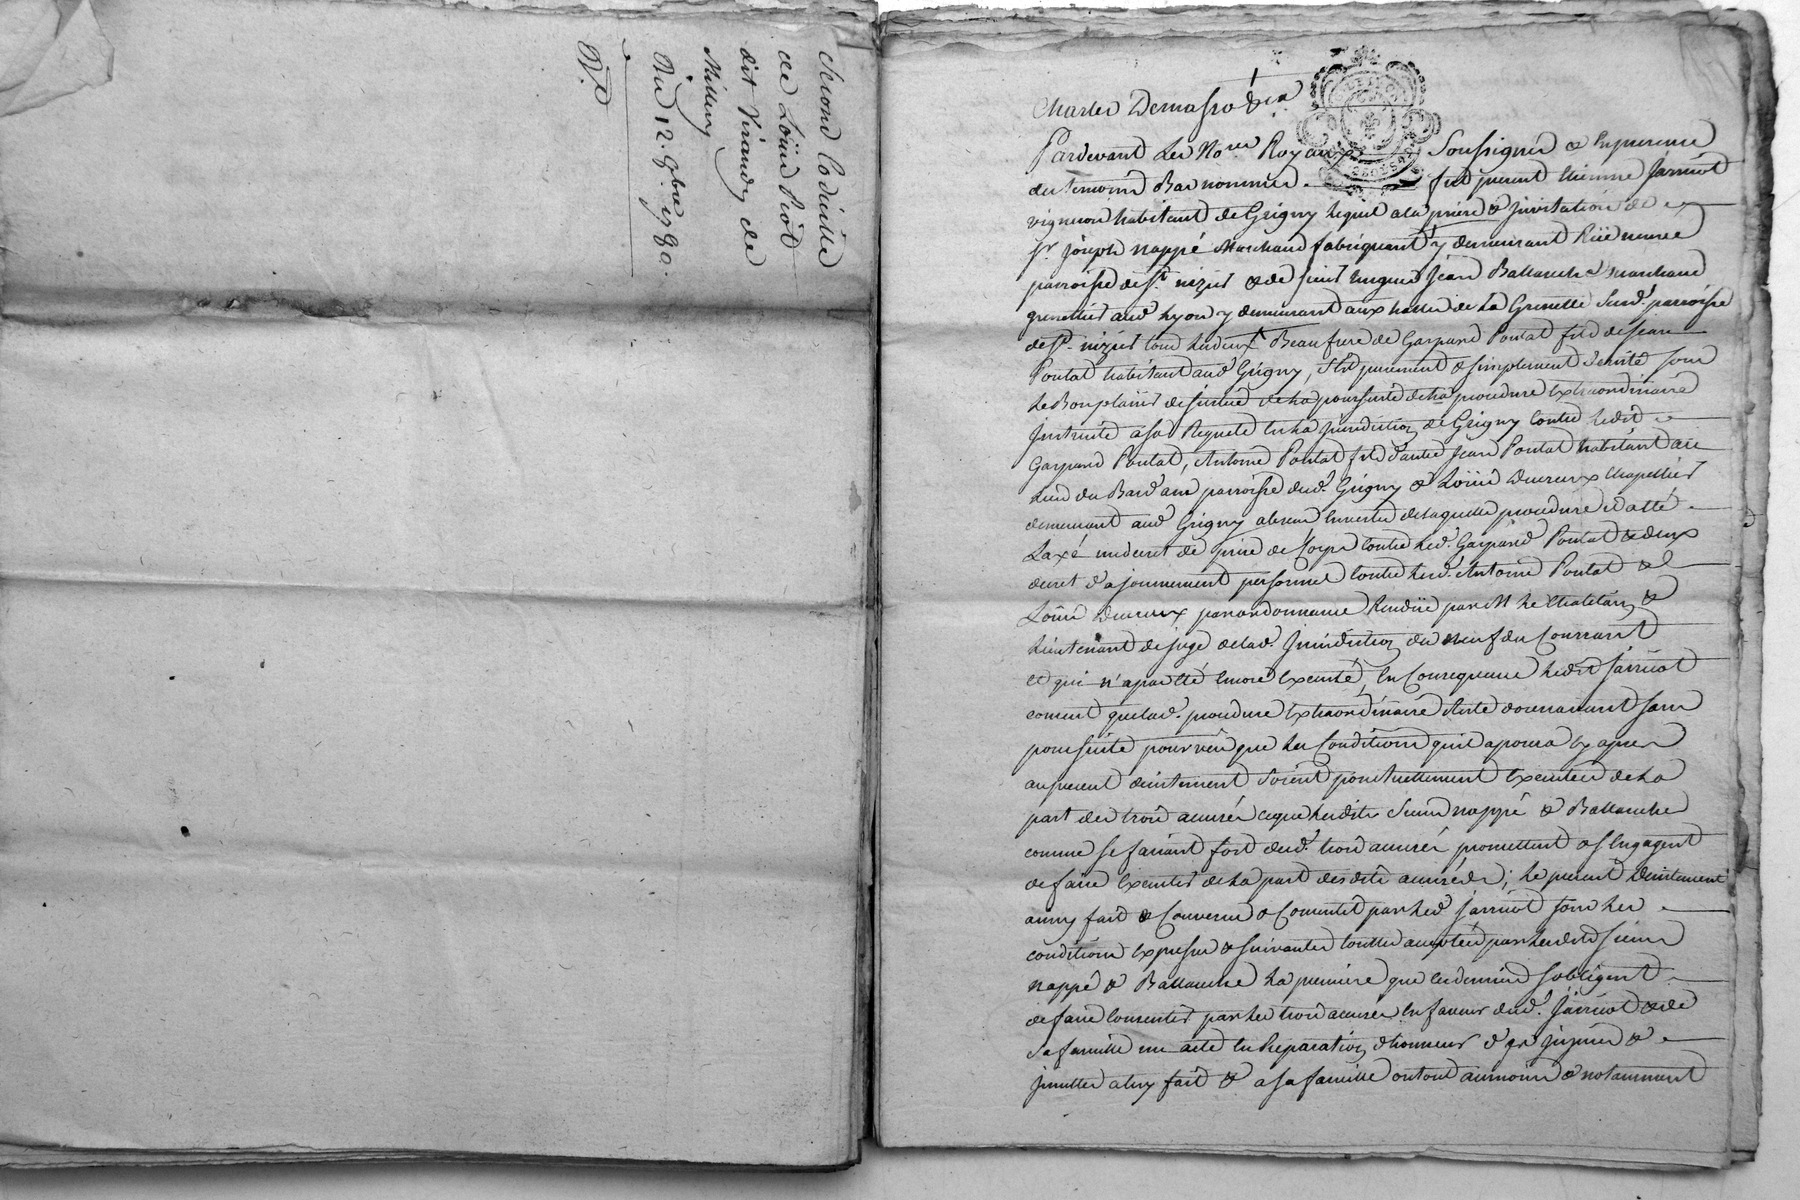 second Codicille
de Loüis Piot
dit Virandy de
Millery
Du 12. 9bre 1780.
Charles Demasso &ca
Pardevant Les Nores Royaux Soussignés & En presence
des temoins Bas nommés. fut present Etienne Jarricot
vigneron habitant de Grigny lequel a la priere & Invitation de
Sr. Joseph nappé Marchand fabriquant y demeurant Rüe neuve
parroisse de St. nizier & de sieur Jean Ballanche marchand
grenettier aud Lyon y demeurant aux halles de la Grenette Susd. parroisse
de St. nizier tous les deux Beaufrere de Gaspard Pontat fils de Jean
Pontat habitant aud Grigny, s'est purement & simplement desisté sous
le Bon plaisir de justice de la poursuitte de la procedure Extraordinaire
Instruite a sa Requete En la Jurisdiction de Grigny Contre ledit
Gaspard Pontat, Antoine Pontat fils d'autre Jean Pontat habitant au
Lieu du parroisse dud. Grigny & Loüis Ducreux Chapellier
demeurant aud Grigny En vertu de laquelle procedure il a été
Laxé un decret de prise de Corps Contre led. Gaspard Pontat & deux
decret d'ajournement personnel Contre lesd. Antoine Pontat &
Loüis Ducreux par ordonnance Rendüe par M le Chatelain &
Lieutenant de juge de lad. Jurisdiction du neuf du Courrant
Ce qui n'a pas été Encore Executé, En Consequence ledit Jarricot
consent que lad. procedure Extraordinaire reste dorenavant sans
poursuite pourvû que les Conditions qu'il aposera Cy apres
au present desistement soient ponctuellement Executées de la
part des trois accusés ce que lesdits Sieurs nappé & Ballanche
comme se faisant fort desd. trois accusés promettent & s'Engagent
de faire Executer de la part desdits accusés; le present desistement
ainsy fait & Convenu & Consenti par led Jarricot sous les
conditions Expresses & suivantes touttes acceptées par lesdits sieurs
nappé & Ballanche La premiere que ces derniers s'obligent
de faire Consentir par les trois accusés En faveur dud. Jarricot & de
Sa famille un acte En Reparation d'honneur & Injures &
Insultes a luy fait & a sa famille & notamment